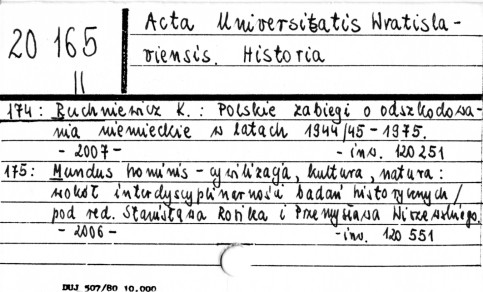 Acta Universitatis Wratisla-
20 165
viensis. Historia
II
174: Ruchniewicz K.: Polskie zabiegi o odszkodowa-
nia niemieckie w latach 1944/45-1975.
- 2007 - - inw. 120 251
175: Mundus hominis - cywilizacja, kultura, natura:
wokół interdyscyplinarności badań historycznych /
pod red. Stanisława Rosika i Przemysława Wiszewskiego.
- 2006 - - inw. 120 551
DUJ 507/80 10.000